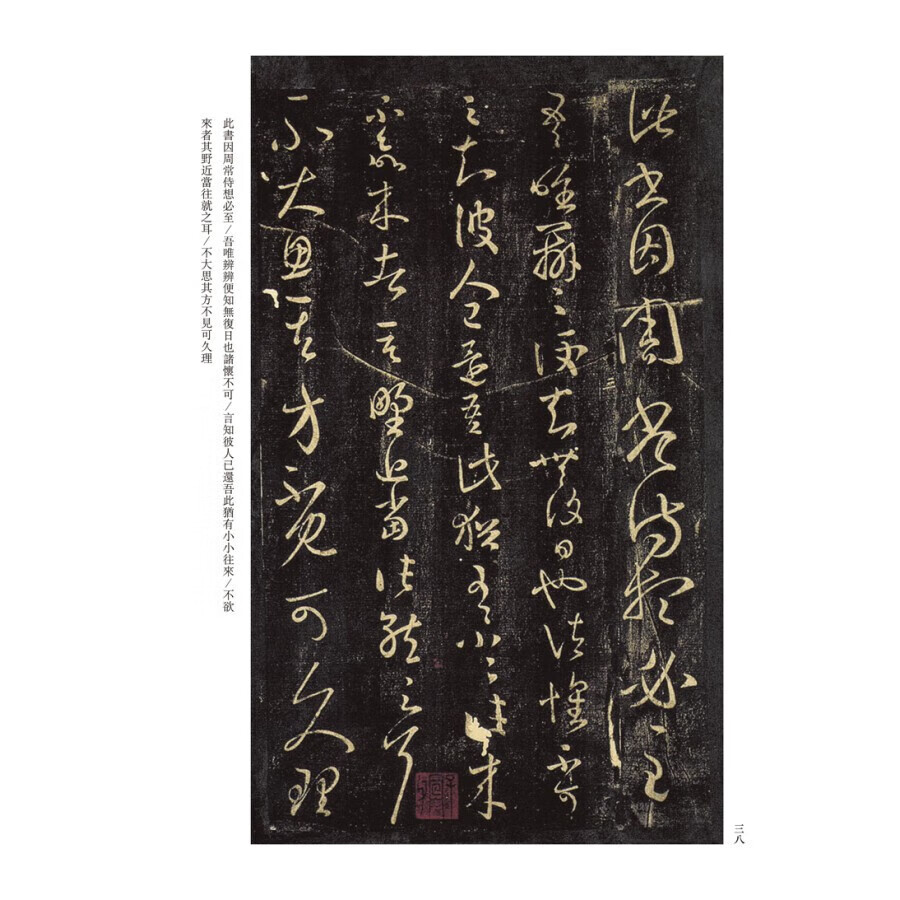 此書因周常侍想必至
吾唯辨〻便知無復日也諸懷不可
言知彼人已還吾此猶有小〻往來
不欲來者其野近當往就之耳
不大思其方不見可久理
此書因周常侍想必至/吾唯辨辨便知無復日也諸懷不可/言知彼人己還吾此猶有小小往來/不欲
來者其野近當往就之耳/不大思其方不見可久理
三八